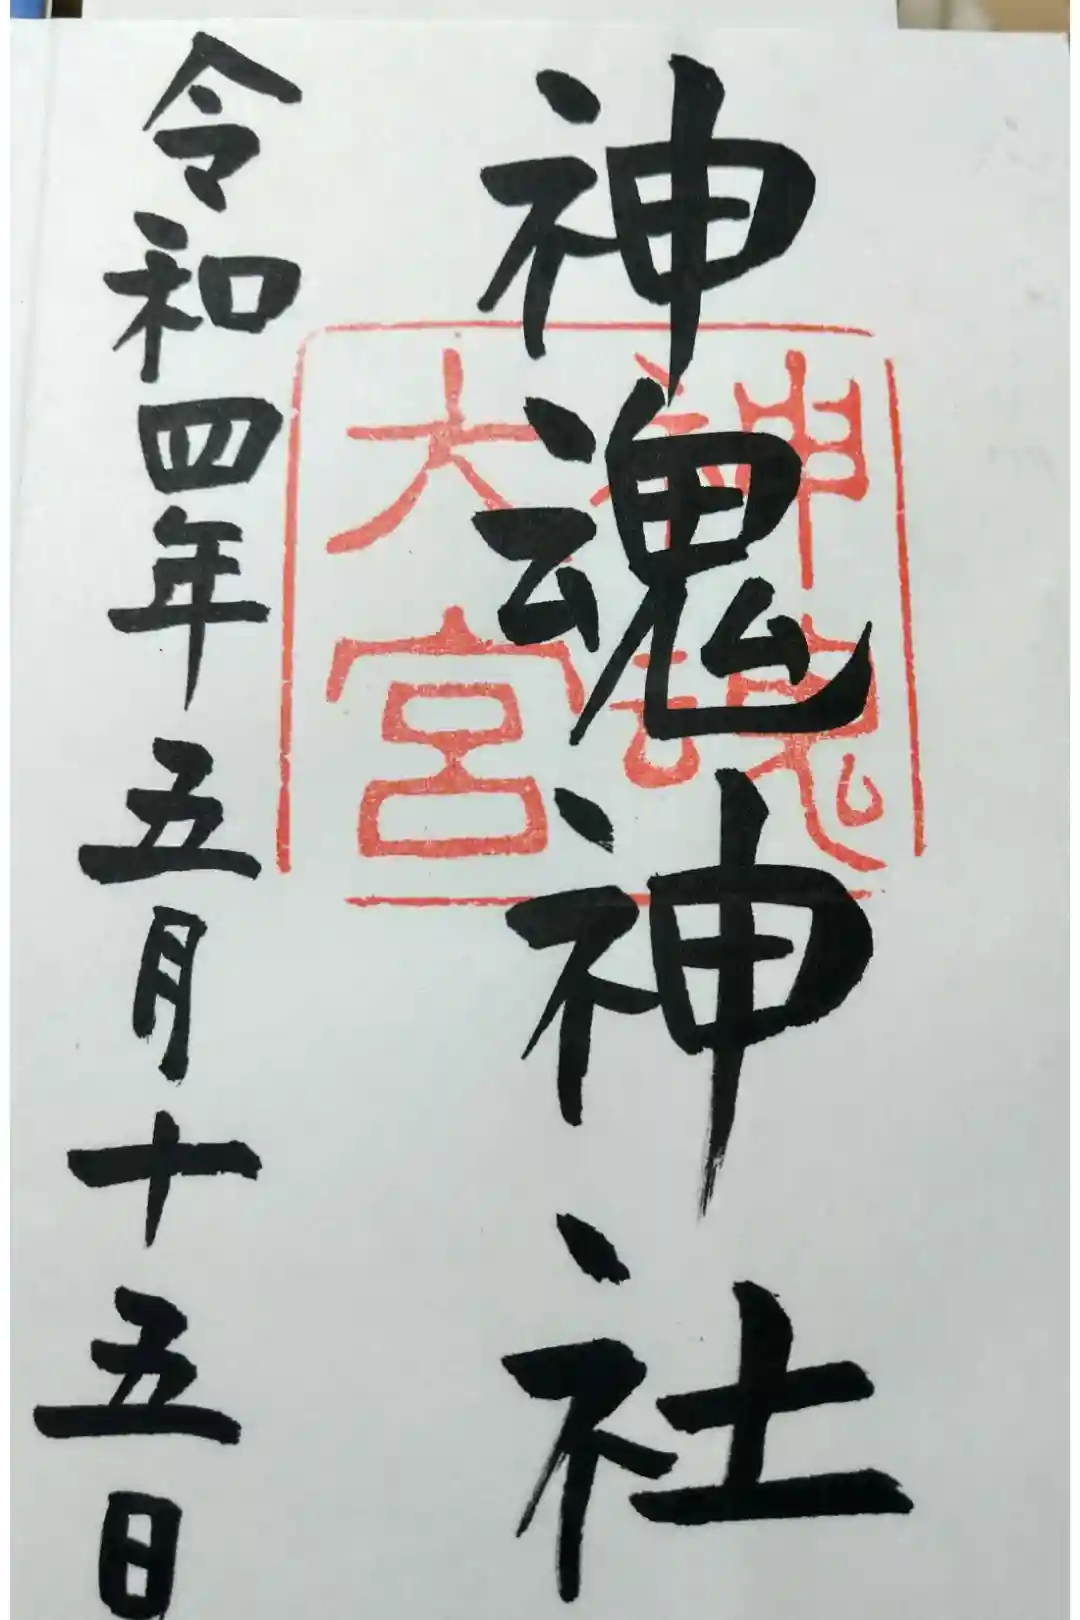 神魂神社
神魂
大宮
令和四年五月十五日